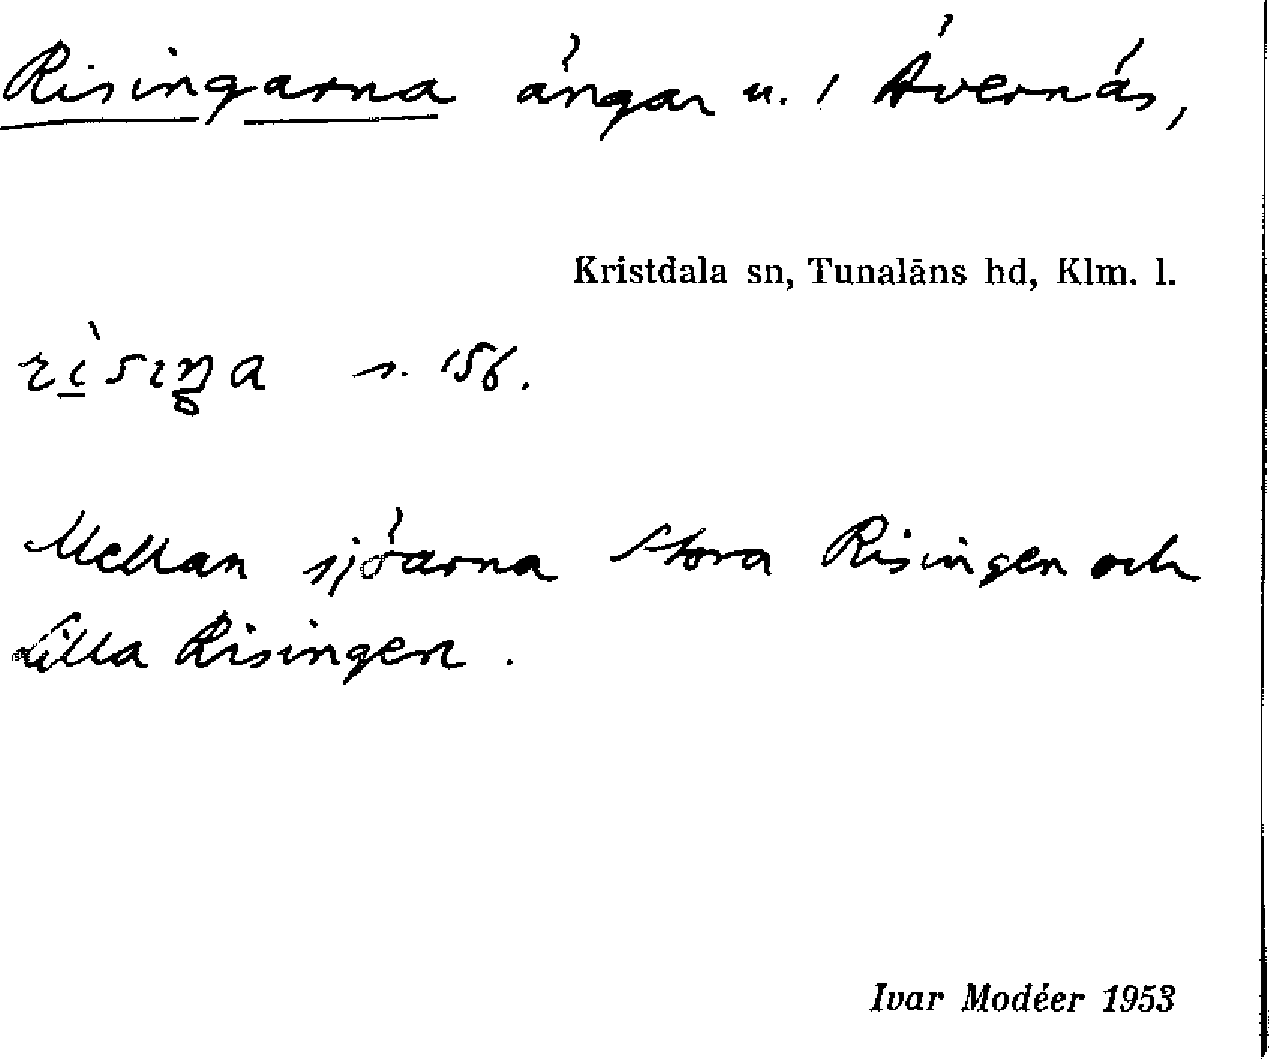 Risingarna ängar u. 1 Övernäs,
Kristdala sn, Tunaläns hd, Klm. l.
rìsiŋa s. 156.
Mellan sjöarna Stora Risingen och
Lilla Risingen.
Ivar Modéer 1953